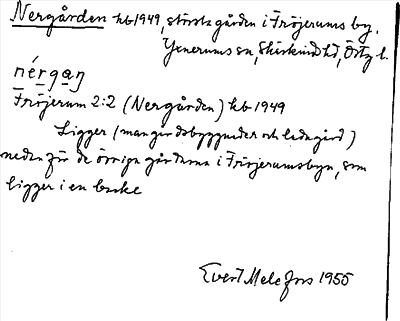 Nergården kb 1949, största gården i Fröjerums by.
Yxnerums sn, Skärkinds hd, Östg l.
nérgaɳ
Fröjerum 2:2 (Nergården) kb 1949
Ligger (mangårdsbyggnader och ladugård)
nedanför de övriga gårdarna i Fröjerumsbyn, som
ligger i en backe
Evert Melefors 1955